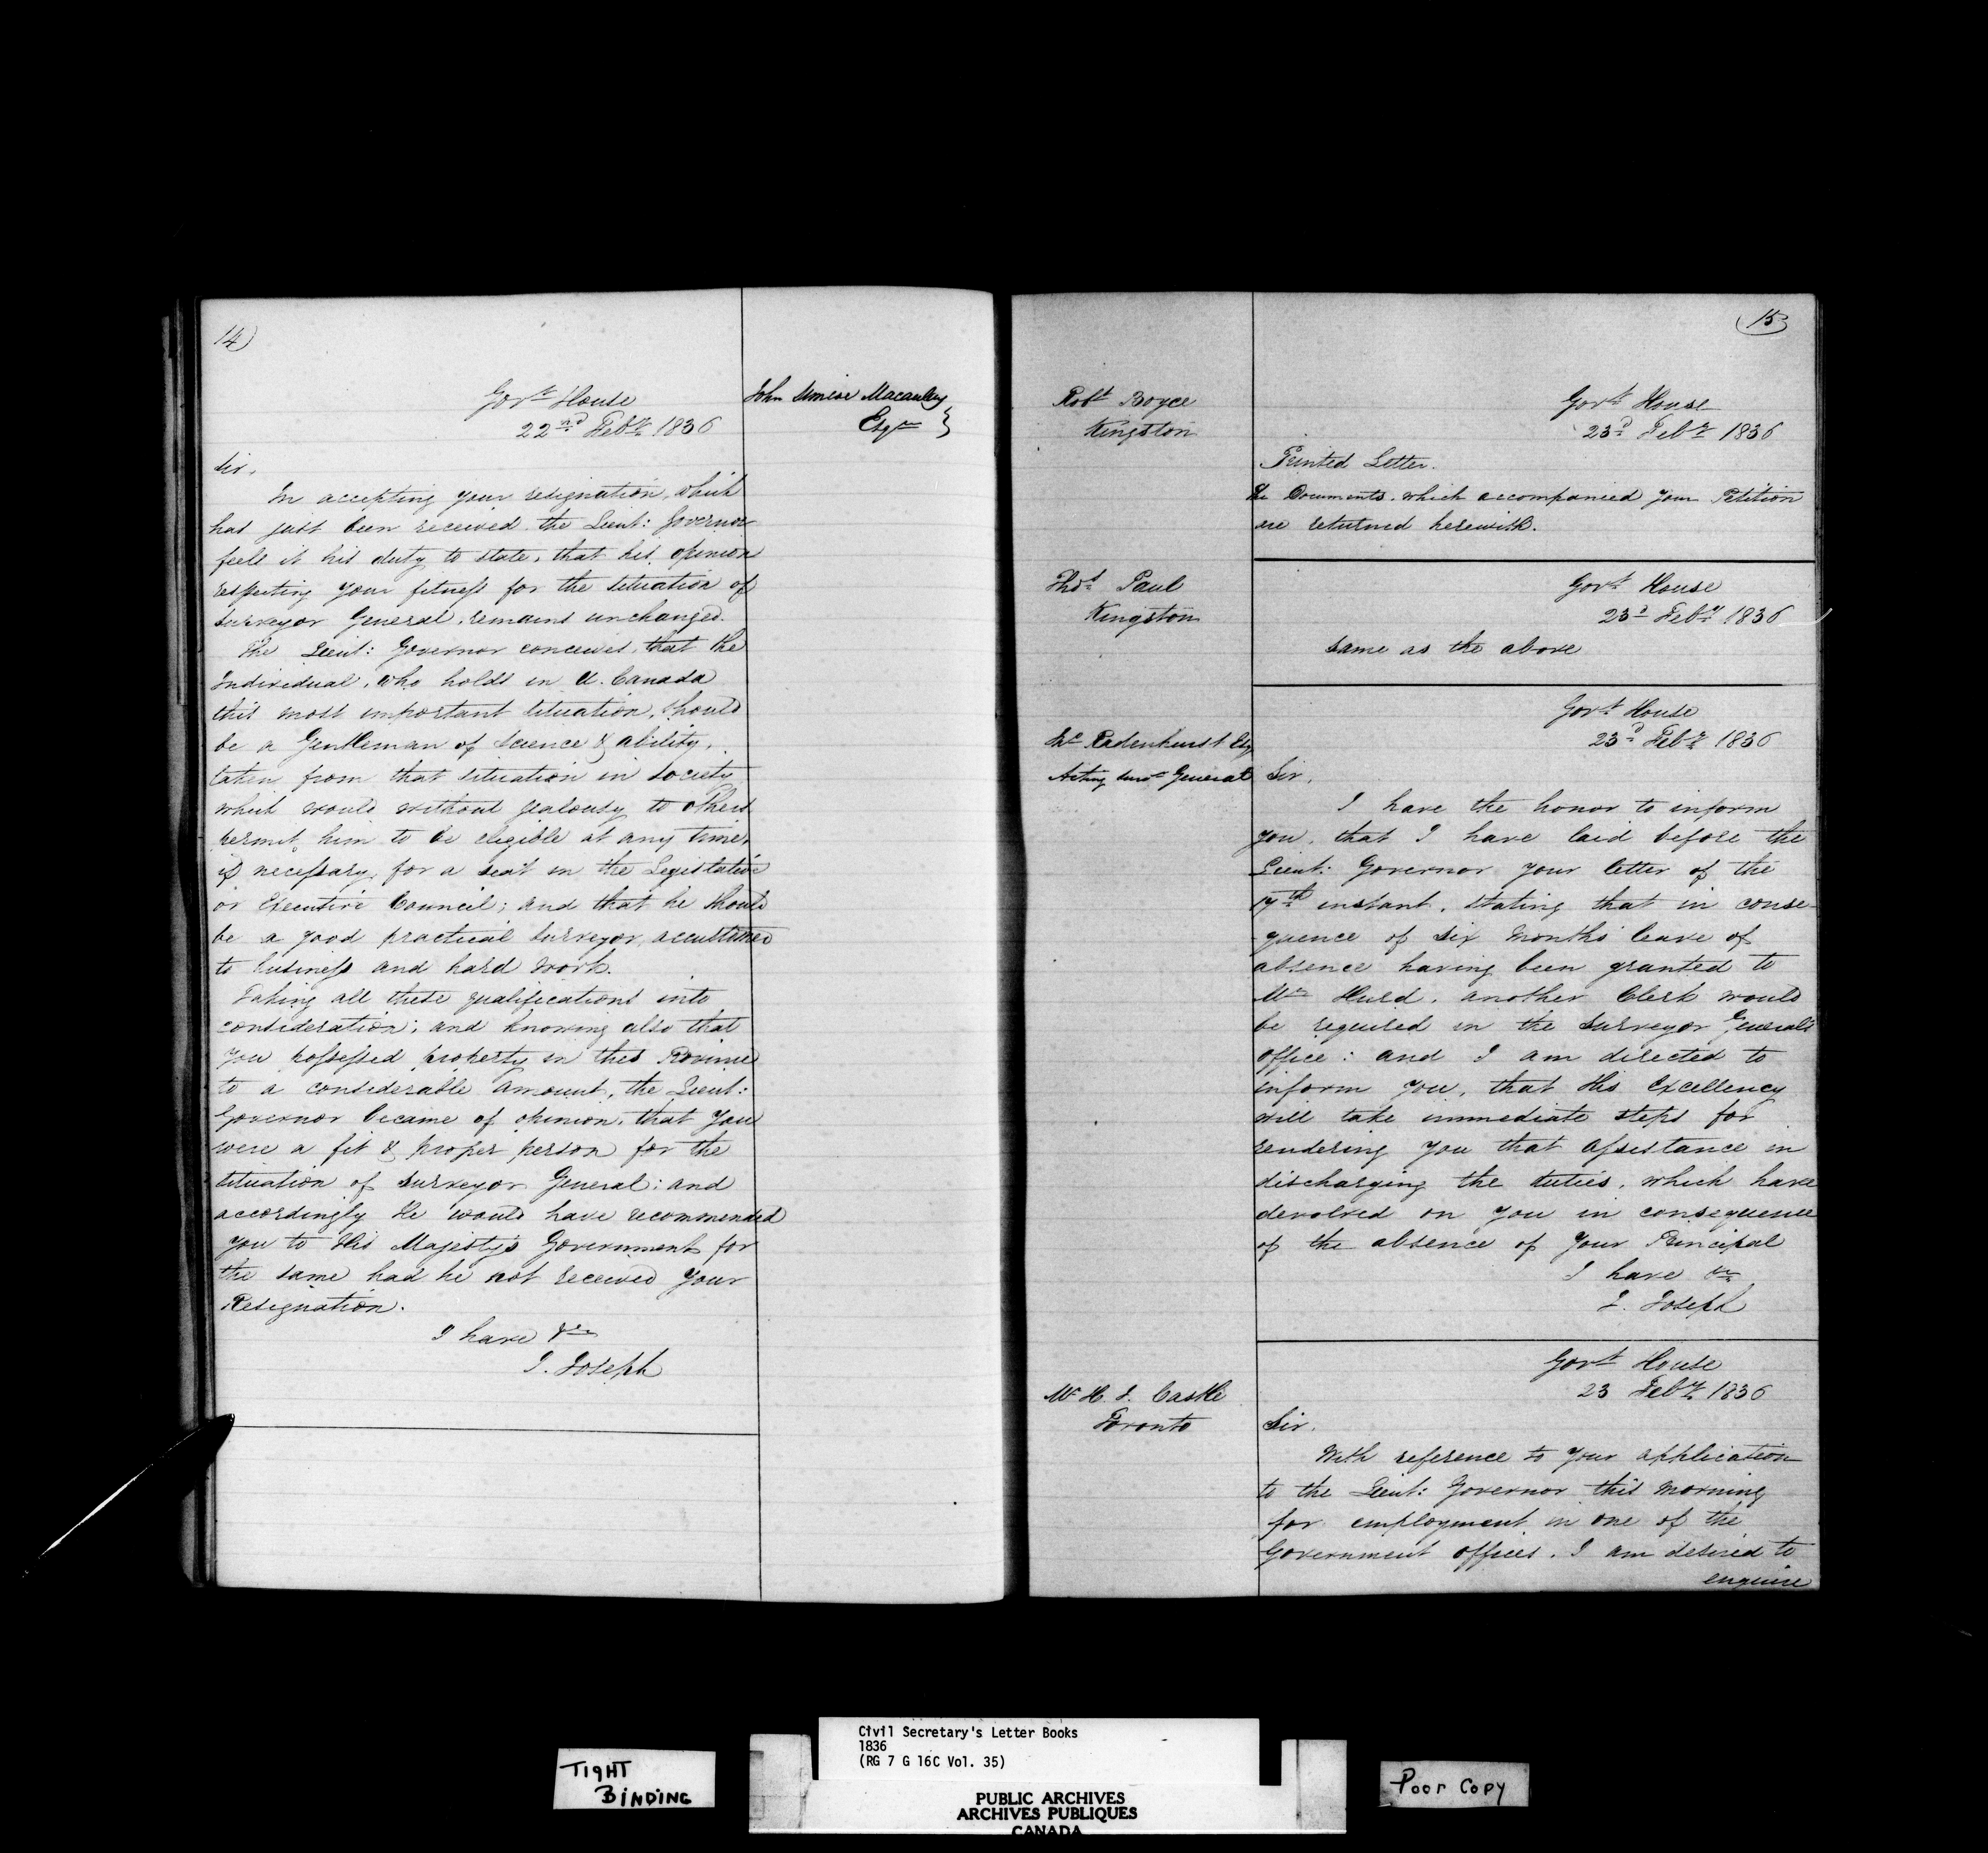 14)
Govt House
22nd Feby 1836
John Simcoe Macauley
Esqre }
Sir,
In accepting your resignation, which
has just been received the Lieut: Governor
feels it his duty to state, that his opinion
respecting your fitness for the situation of
Surveyor General, remains unchanged.
The Lieut: Governor conceives, that the
Individual, who holds in U. Canada
this most important situation, should
be a Gentleman of Science & ability,
taken from that situation in society
which would without jealousy to others
permit him to be eligible at any time,
if necessary, for a seat in the Legislative
or Executive Council; and that he should
be a good practical Surveyor, accustomed
to business and hard work.
Taking all these qualifications into
consideration; and knowing also that
you possessed property in this Province
to a considerable amount, the Lieut:
Governor became of opinion, that you
were a fit & proper person for the
situation of Surveyor General; and
accordingly He would have recommended
you to His Majesty's Government for
the same had he not received your
Resignation.
I have &c
J. Joseph
15
Robt Boyce
Kingston
Govt House
23d Feby 1836
Printed Letter.
The Documents, which accompanied your Petition
are returned herewith.
Thos Paul
Kingston
Govt House
23d Feby 1836
Same as the above
Govt House
23d Feby 1836
Radenhurst Esq
Acting Survr General
Sir,
I have the honor to inform
you, that I have laid before the
Lieut: Governor your letter of the
17th instant, stating that in conse-
quence of six months' leave of
absence having been granted to
Mr Hurd, another Clerk would
be required in the Surveyor General's
office: and I am directed to
inform you, that His Excellency
will take immediate steps for
rendering you that assistance in
discharging the duties, which have
devolved on you in consequence
of the absence of your Principal
I have &c
J. Joseph
Govt House
23 Feby 1836
Mr H. J. Castle
Toronto
Sir,
With reference to your application
to the Lieut: Governor this morning
for employment in one of the
Government offices, I am desired to
enquire
Civil Secretary's Letter Books
1836
(RG 7 G 16C Vol. 35)
TIGHT
BINDING
PUBLIC ARCHIVES
ARCHIVES PUBLIQUES
CANADA
Poor Copy